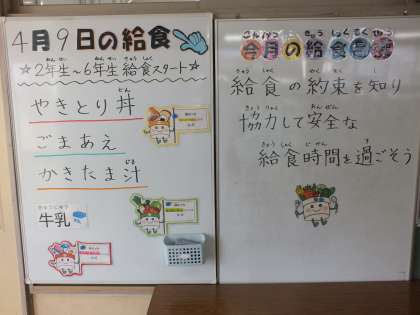 4月9日の給食
☆2年生～6年生給食スタート☆
やきとり丼
ごまあえ
かきたま汁
牛乳
今月の給食
給食の約束を知り
協力して安全な
給食時間を過ごそう